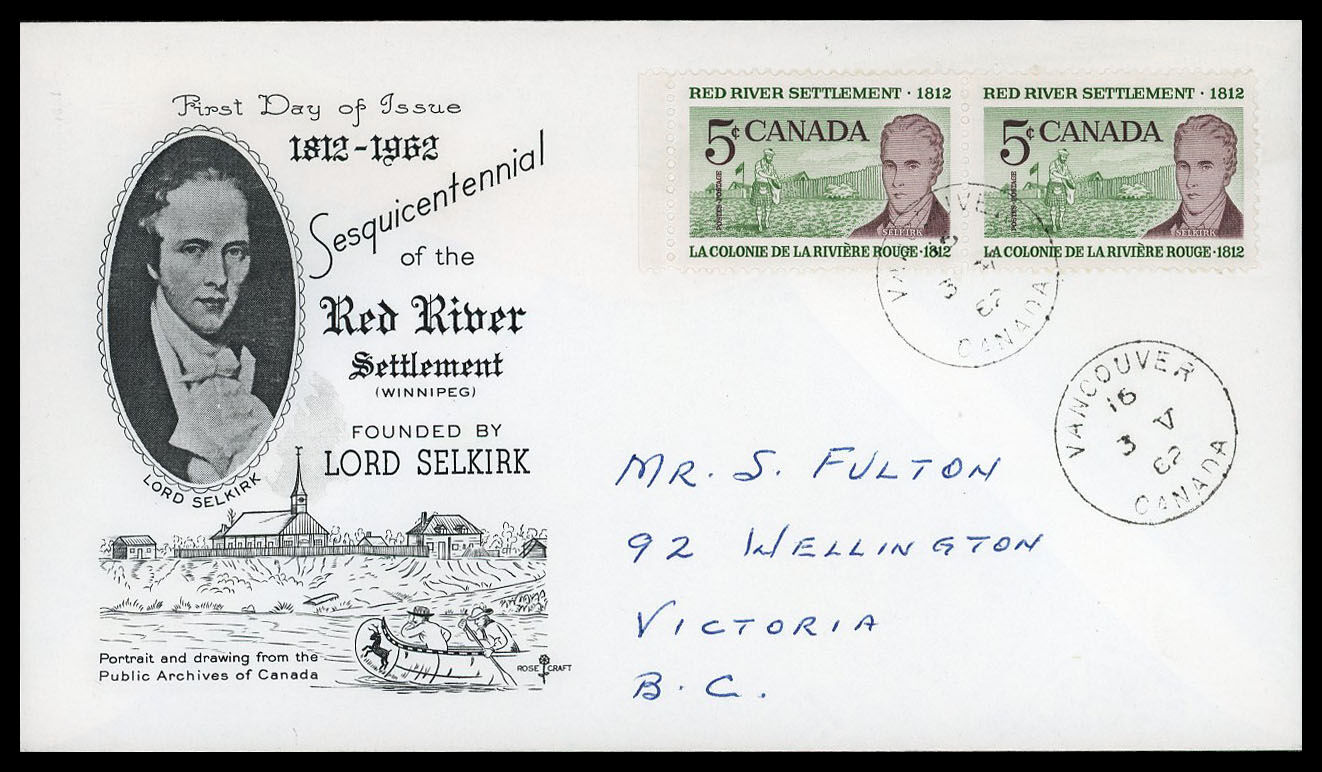 First Day of Issue
1812-1962
Sesquicentennial
of the
Red River
Settlement
(WINNIPEG)
FOUNDED BY
LORD SELKIRK
LORD SELKIRK
Portrait and drawing from the
Public Archives of Canada
ROSE CRAFT
RED RIVER SETTLEMENT · 1812
5¢ CANADA
POSTES-POSTAGE
SELKIRK
LA COLONIE DE LA RIVIÈRE ROUGE · 1812
RED RIVER SETTLEMENT · 1812
5¢ CANADA
POSTES-POSTAGE
SELKIRK
LA COLONIE DE LA RIVIÈRE ROUGE · 1812
VANCOUVER
3
62
CANADA
VANCOUVER
16
3 V
62
CANADA
MR. S. FULTON
92 WELLINGTON
VICTORIA
B.C.